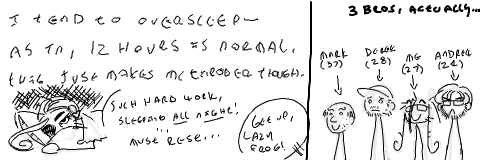 I TEND TO OVERSLEEP~
AS IN, 12 HOURS IS NORMAL.
THIS JUST MAKES ME TIREDER THOUGH.
SUCH HARD WORK,
SLEEPING ALL NIGHT!
...
MUST REST...
GET UP,
LAZY
FROG!
3 BROS, ACTUALLY...
MARK
(37)
DEREK
(28)
ME
(27)
ANDREW
(24)